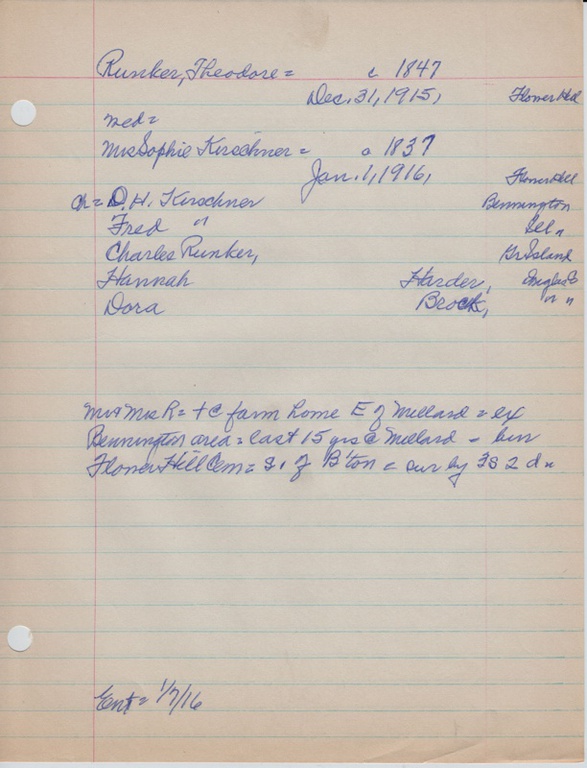 Runker, Theodore = c 1847
Dec. 31, 1915, Flower Hill
med =
Mrs Sophie Kirschner = a 1837
Jan. 1, 1916, Flower Hill
ch = D. H. Kirschner Bennington
Fred " Ill "
Charles Runker, Gr Island
Hannah Harder, Douglas Co
Dora Brock, " "
Mr + Mrs R = + @ farm home E of Millard = ex
Bennington area = last 15 yrs @ Millard - bur
Flower Hill Cem = S. of B'ton = sur by 3s 2 d =
Ent = 1/7/16